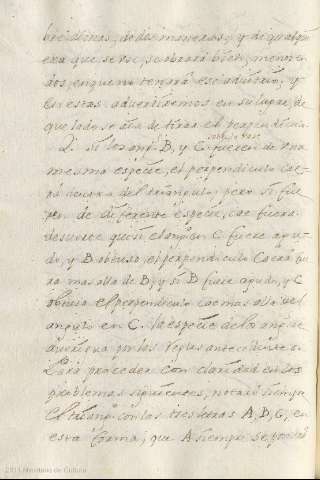 de dos maneras; y de qualq.
era que se use, se obrará bien, menos en
dos, en que no tenerá esta advertencia, y
en estas advertiremos en su lugar, de
que lado se aia de tirar el perpendiculo.
sobre la base
2. Si los ang.s B, y C fueren de una
mesma especie, el perpendiculo cae-
rá dentro del triangulo; pero si fue-
ren de diferente especie, cae fuera:
desuerte que si el ang. en C fuere agu-
do, y B obtuso, el perpendiculo caerá fu
ra mas alla de B; y si B fuere agudo, y C
obtuso el perpendiculo cae mas alla del
angulo en C. la especie de los ang. se
por las reglas antecedentes.
Para proceder con claridad en los
problemas siguientes, notaré siempre
el triang. con las tres letras A, B, C, en
esta forma, que A siempre se pondrá
2011 Ministerio de Cultura